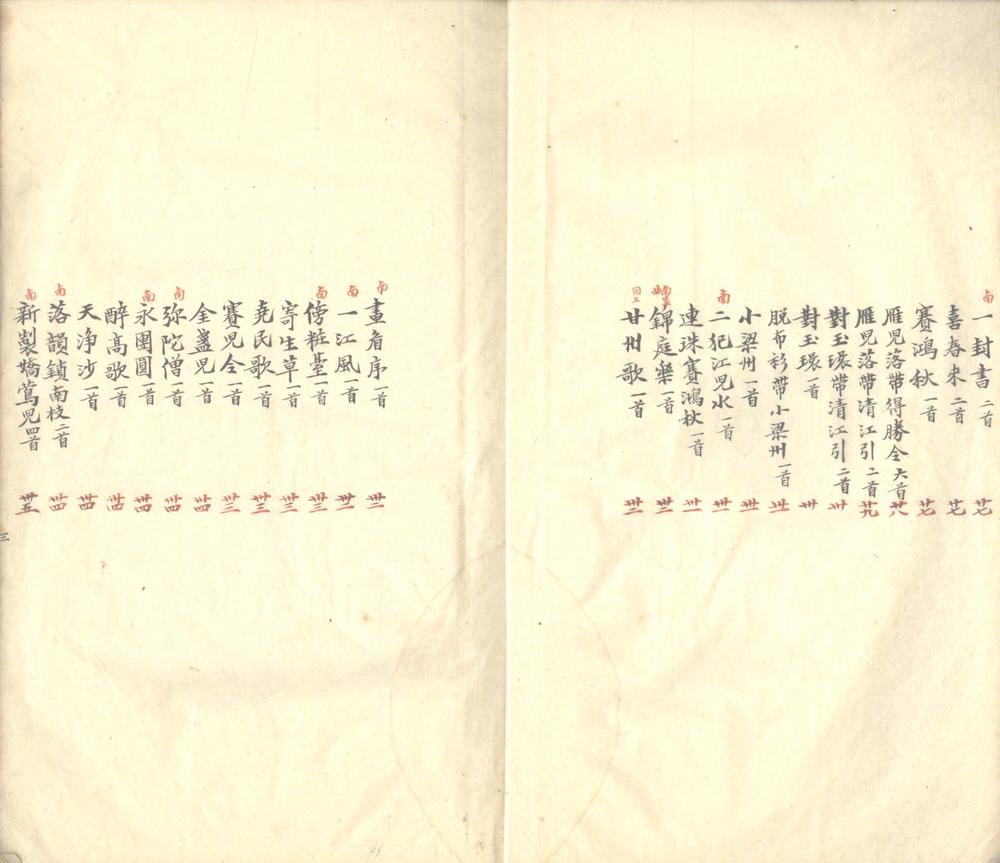 南 一封書 二首 廿七
喜春來 二首 廿七
賽鴻秋 一首 廿七
雁児落帶得勝令 六首 廿八
雁児落帶清江引 二首 廿九
對玉環帶清江引 二首 卅
對玉環 一首 卅
脱布衫帶小梁州 一首 卅一
小梁州 一首 卅一
南 二犯江児水 一首 卅一
連珠賽鴻秋 一首 卅一
錦庭樂 一首 卅二
同上 甘州歌 一首 卅二
南 畫眉序 一首 卅二
南 一江風 一首 卅二
南 傍粧臺 一首 卅三
寄生草 一首 卅三
堯民歌 一首 卅三
賽児令 一首 卅三
金盞児 一首 卅四
南 弥陀僧 一首 卅四
南 永團圓 一首 卅四
醉高歌 一首 卅四
天净沙 一首 卅四
南 落韻鎖南枝 二首 卅四
南 新製嬌鶯児 四首 卅五
三